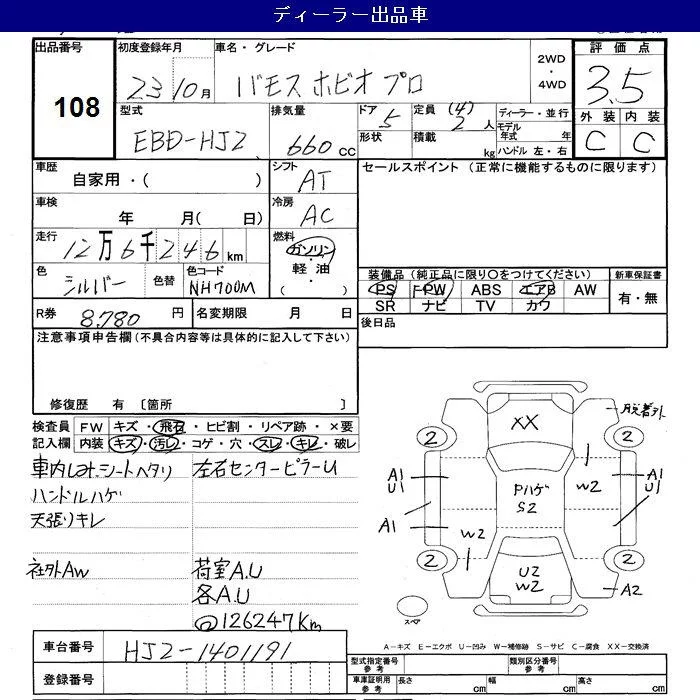 ディーラー出品車
出品番号 初度登録年月 車名・グレード 2WD・4WD 評価点
108 23 10月 バモス ホビオ プロ 3.5
型式 排気量 ドア 5 定員 (4) 2人 ディーラー・並行 外装 内装
EBD-HJ2 660cc 形状 積載 kg モデル年式 年 C C
ハンドル 左・右
車歴 自家用・( ) シフト AT セールスポイント (正常に機能するものに限ります)
車検 年 月( 日) 冷房 AC
走行 12万6千246km 燃料 ガソリン・軽油・( )
色 シルバー 色替 色コード NH700M 装備品 (純正品に限り○をつけてください) 新車保証書
PS PW ABS エアB AW 有・無
SR ナビ TV カワ
R券 8.780円 名変期限 月 日 後日品
注意事項申告欄 (不具合内容等は具体的に記入して下さい)
修復歴 有 〔箇所 〕
検査員 FW キズ・飛石・ヒビ割・リペア跡・×要
記入欄 内装 キズ・汚レ・コゲ・穴・スレ・キレ・破レ
車内しみ.シートヘタリ 左右センターピラーU
ハンドルハゲ
天張りキレ
社外AW 荷室A.U
各A.U
@126247Km
XX 脱着外
2 2
A1 U1 W2 A1 U1
Pハゲ S2
A1 W2
2 U2 W2 2
A2
スペア
A－キズ E－エクボ U－凹み W－補修跡 S－サビ C－腐食 XX－交換済
車台番号 HJ2-1401191
登録番号
型式指定番号 参考 類別区分番号 参考
車庫証明用 参考 長さ cm 幅 cm 高さ cm